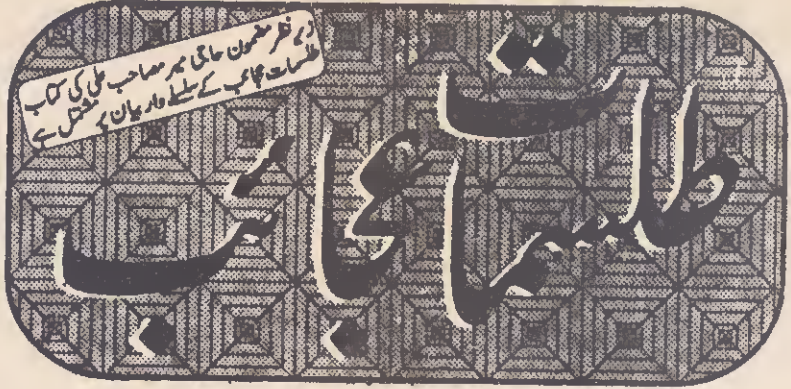 زیر نظر مضمون حاجی میر مصاحب علی کی کتاب
طلسمات عجائب کے سلسلے وار بیان پر مشتمل ہے
طلسمات عجائب